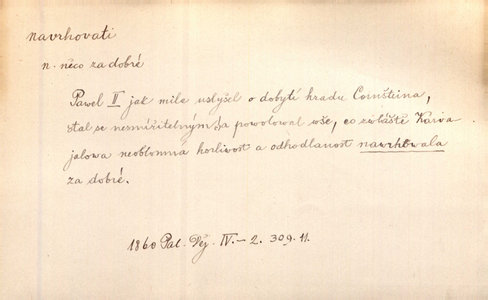 navrhovati
n. něco za dobré
Pawel II jak mile uslyšel o dobytí hradu Cornšteina,
stal se nesmířitelným a powoloval wše, co zvláště Karva
jalowa neoblomná horliwost a odhodlanost nawrhowala
za dobré.
1860 Pal. Děj. IV.-2. 309. 11.